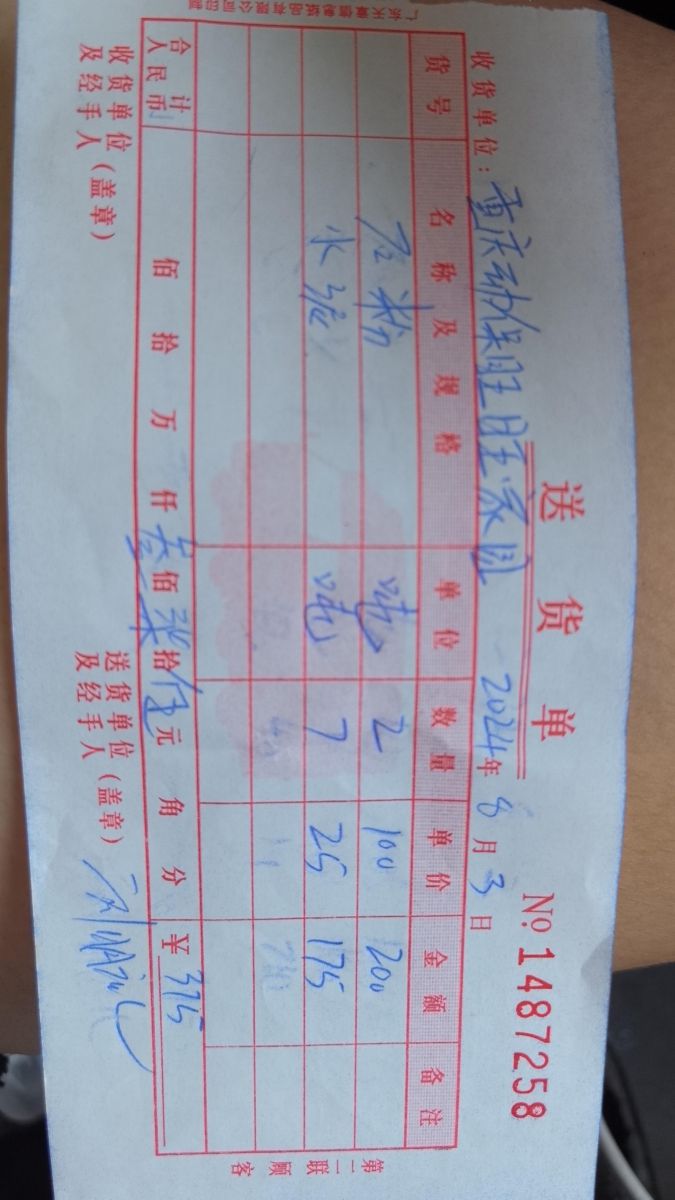 送货单
No 1487258
收货单位：重庆动保旺旺家园 2024年8月3日
货号 名称及规格 单位 数量 单价 金额 备注
石粉 吨 2 100 200
水浪 吨 7 25 175
合计人民币 佰 拾 万 仟 叁佰 柒拾 伍元 角 分 ¥ 375
收货单位及经手人（盖章）
送货单位及经手人（盖章）
第二联 顾客